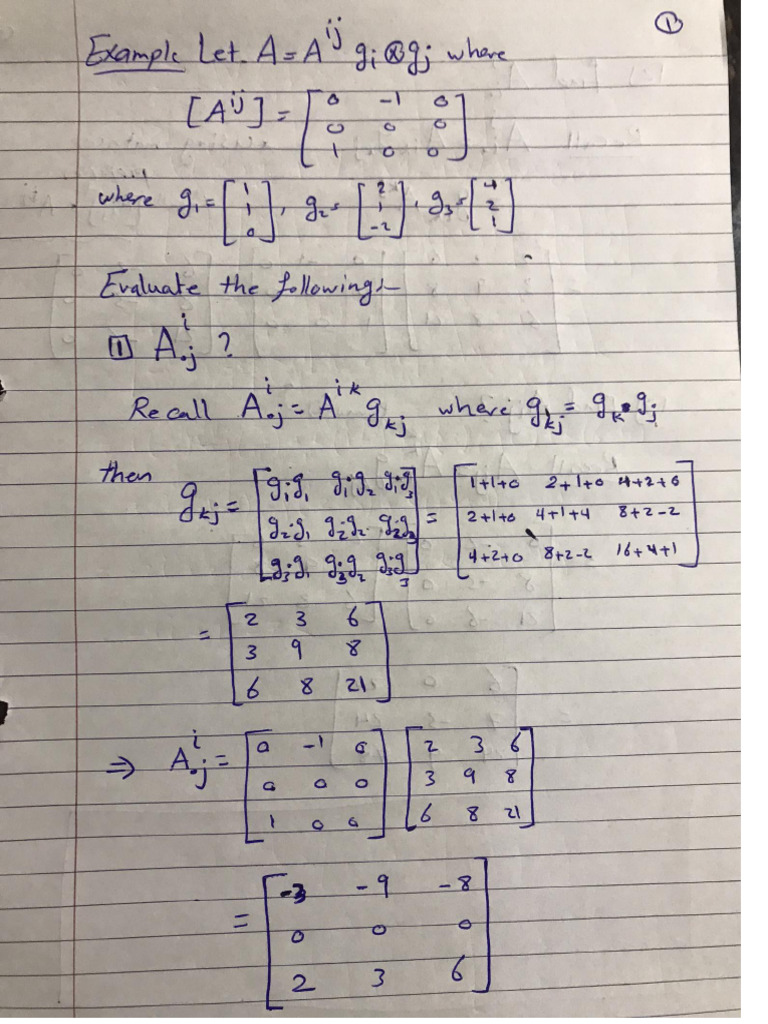 ①
Example Let A = A^{ij} g_i ⊗ g_j where
[A^{ij}] = [0 -1 0; 0 0 0; 1 0 0]
where g_1 = [1; 1; 0], g_2 = [2; 1; -2], g_3 = [4; 2; 1]
Evaluate the following:-
[1] A^i_{.j} ?
Recall A^i_{.j} = A^{ik} g_{kj} where g_{kj} = g_k • g_j
then g_{kj} = [g_1·g_1 g_1·g_2 g_1·g_3; g_2·g_1 g_2·g_2 g_2·g_3; g_3·g_1 g_3·g_2 g_3·g_3] = [1+1+0 2+1+0 4+2+0; 2+1+0 4+1+4 8+2-2; 4+2+0 8+2-2 16+4+1]
= [2 3 6; 3 9 8; 6 8 21]
⇒ A^i_{.j} = [0 -1 0; 0 0 0; 1 0 0] [2 3 6; 3 9 8; 6 8 21]
= [-3 -9 -8; 0 0 0; 2 3 6]